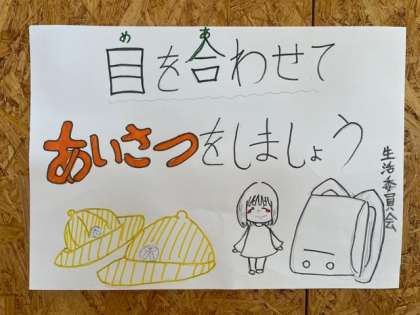 め あ
目を合わせて
あいさつをしましょう
生活委員会